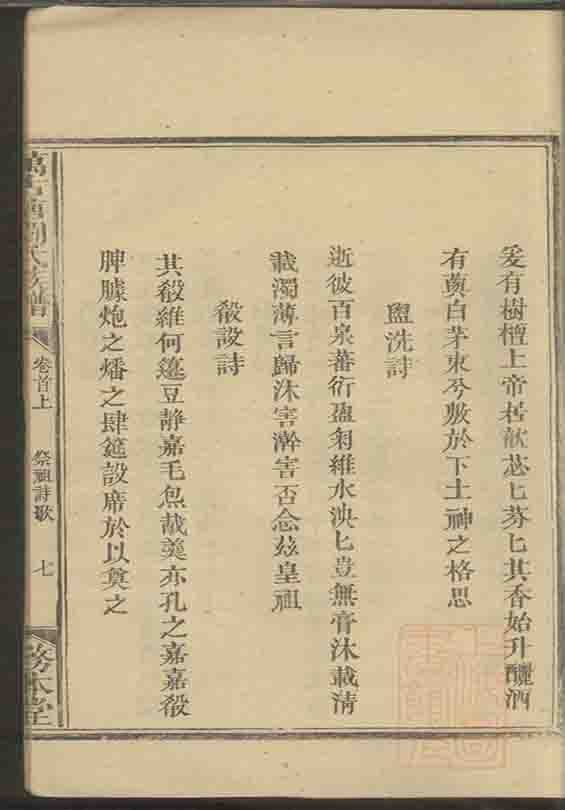 爰有樹檀上帝居歆苾匕芬匕其香始升釃酒
有藇白茅束兮敷於下土神之格思
盥洗詩
逝彼百泉蕃衍盈匊維水泱匕豈無膏沐載清
載濁薄言歸沐害澣害否念茲皇祖
殽設詩
其殽維何籩豆靜嘉毛炰胾羹亦孔之嘉嘉殽
脾臄炮之燔之肆筵設席於以奠之
劉氏族譜
卷首上
祭祖詩歌
七
務本堂